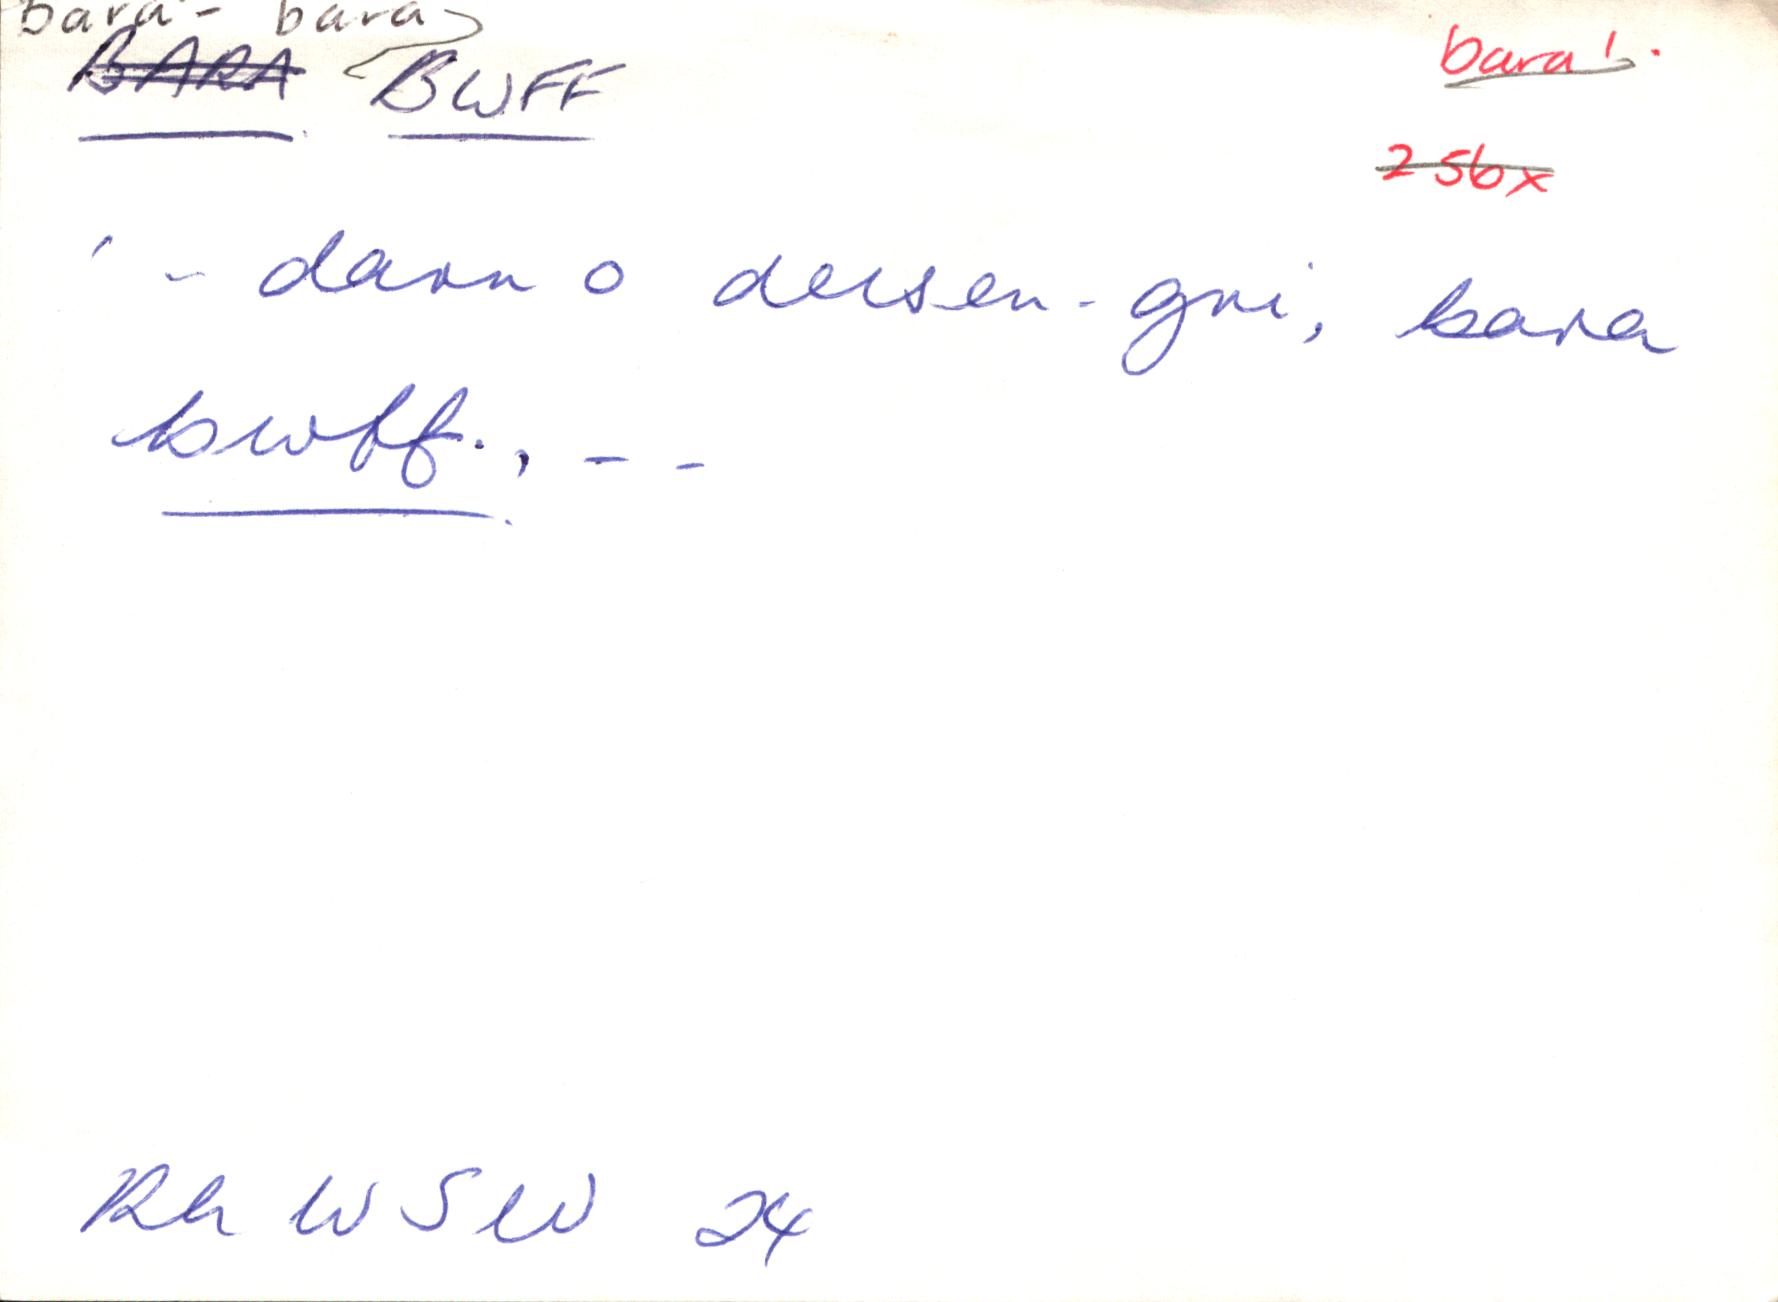 bara¹- bara
BARA BWFF
bara¹.
256x
' - darn o deisen-gri, bara
bwff., - -
Rh WSW 24